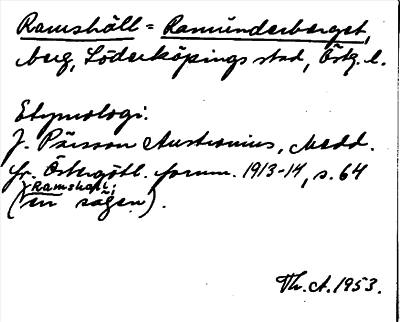 Ramshäll = Ramunderberget,
berg, Söderköpings stad, Östg. l.
Etymologi:
J. Pärsson Austronius, Medd.
fr. Östergötl. fornm. 1913-14, s. 64
(Ramshäll;
en sägen).
Th. A. 1953.